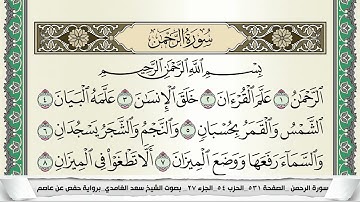 سُورَةُ الرَّحْمَٰن
بِسْمِ اللَّهِ الرَّحْمَٰنِ الرَّحِيمِ
الرَّحْمَٰنُ ١ عَلَّمَ الْقُرْءَانَ ٢ خَلَقَ الْإِنسَٰنَ ٣ عَلَّمَهُ الْبَيَانَ ٤
الشَّمْسُ وَالْقَمَرُ بِحُسْبَانٍ ٥ وَالنَّجْمُ وَالشَّجَرُ يَسْجُدَانِ ٦
وَالسَّمَاءَ رَفَعَهَا وَوَضَعَ الْمِيزَانَ ٧ أَلَّا تَطْغَوْا فِي الْمِيزَانِ ٨
سورة الرحمن _ الصفحة ٥٣١ _ الحزب ٥٤ _ الجزء ٢٧ _ بصوت الشيخ سعد الغامدي _ برواية حفص عن عاصم